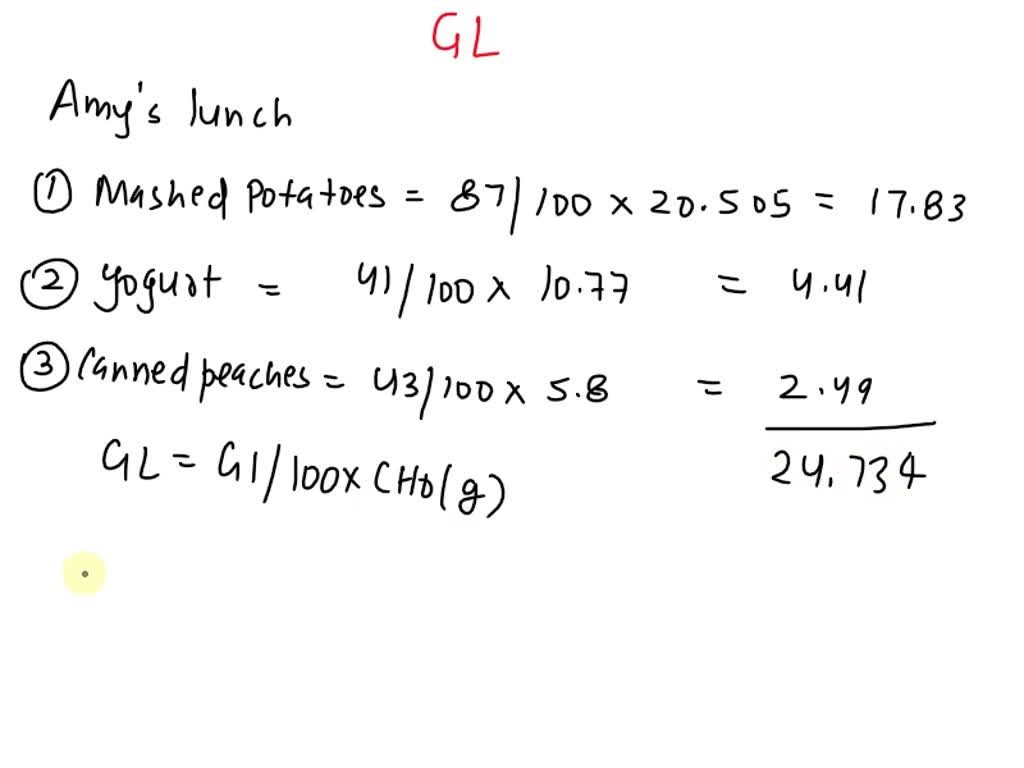 GL
Amy's lunch
① Mashed Potatoes = 87/100 x 20.505 = 17.83
② Yogurt = 41/100 x 10.77 = 4.41
③ Canned peaches = 43/100 x 5.8 = 2.49
GL = GI/100x CHO(g)
24.734